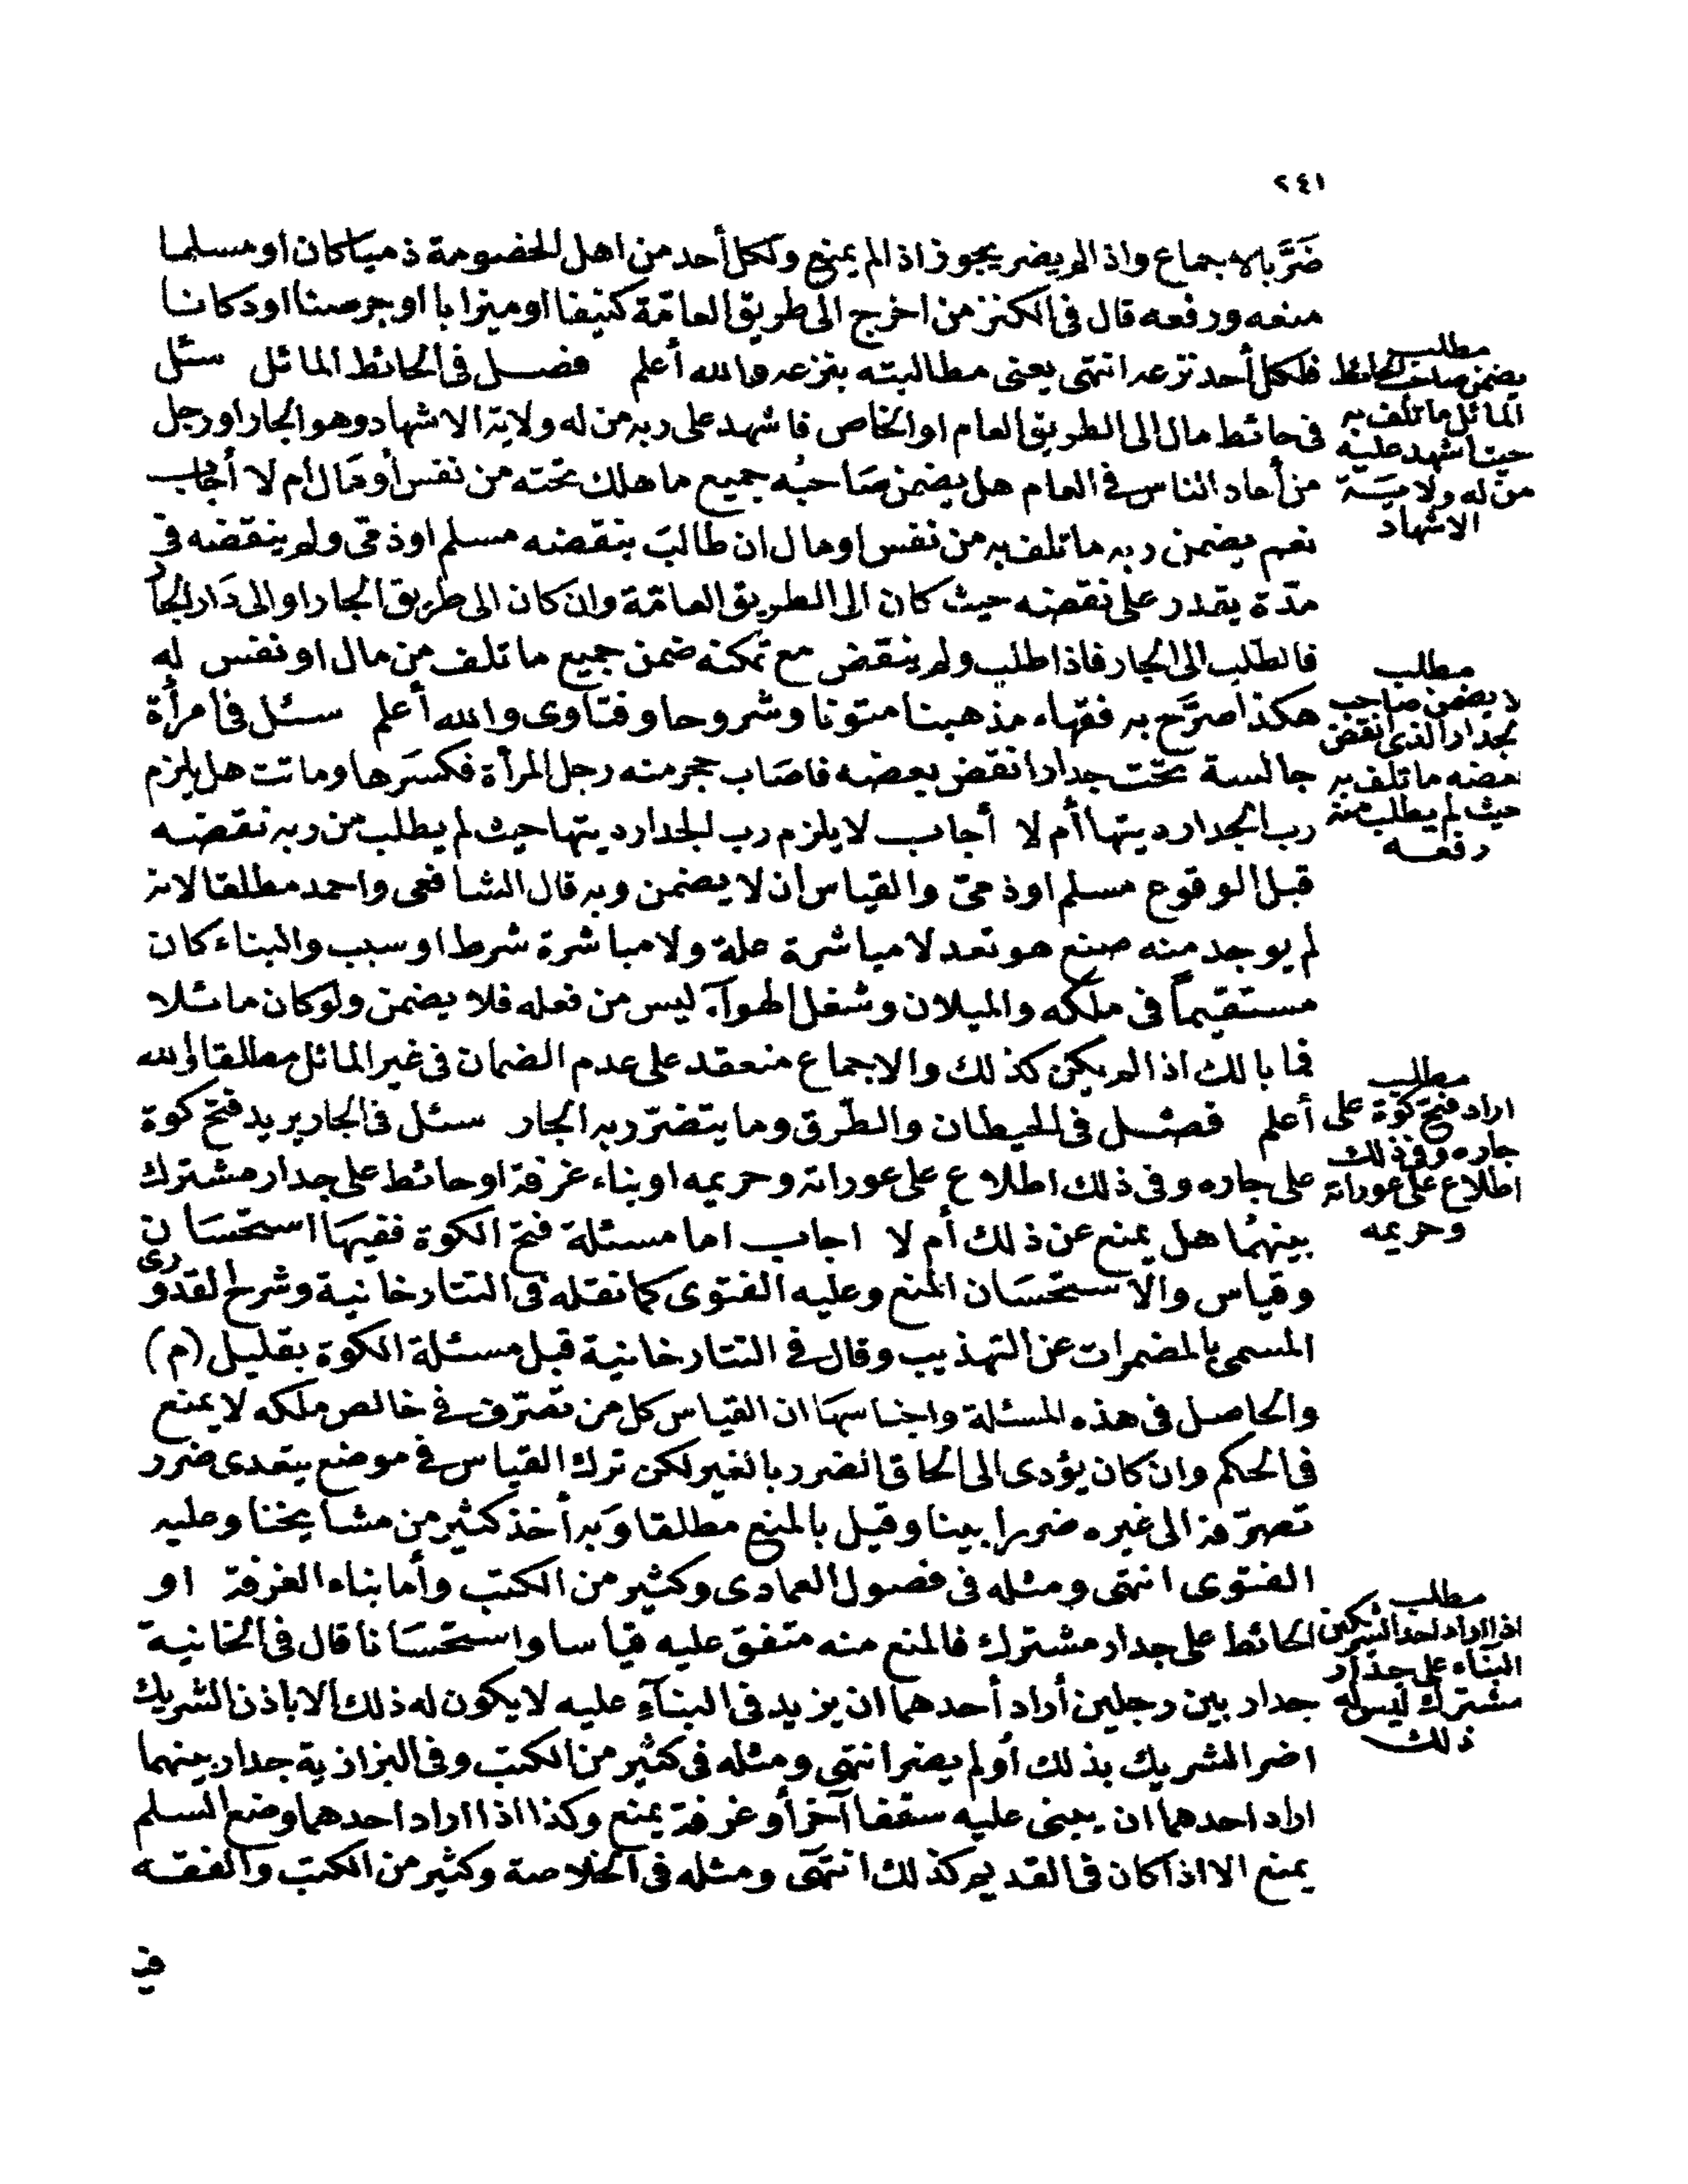 ٢٤١
ضَرَّ بالاجماع واذا لم يضر يجوز اذا لم يمنع ولكل أحد من اهل الخصومة ذميا كان او مسلما
منعه ورفعه قال في الكنز من اخرج الى طريق العامّة كنيفا او ميزابا او جرصنا او دكانا
فلكل أحد نزعه انتهى يعنى مطالبته بنزعه والله أعلم فصل في الحائط المائل سئل
في حائط مال الى الطريق العام او الخاص فاشهد على ربه من له ولاية الاشهاد وهو الجار او رجل
من أحاد الناس في العام هل يضمن صَاحبُه جميع ما هلك تحته من نفس أو مَال أم لا أجَاب
نعم يضمن ربه ما تلف به من نفس او مال ان طالبَ بنقضه مسلم او ذمّى ولم ينقضه في
مدّة يقدر على نقضه حيث كان الى الطريق العامّة وان كان الى طريق الجار او الى دَار الجار
فالطّلب الى الجار فاذا طلب ولم ينقض مع تمكنه ضمن جميع ما تلف من مال او نفس له
هكذا صرَّح به فقهاء مذهبنا متونا وشروحا وفتاوى والله أعلم سئل في امرأة
جالسة تحت جدار انقض بعضه فاصَاب حجر منه رجل المرأة فكسَرها وماتت هل يلزم
رب الجدار ديتها أم لا أجاب لا يلزم رب الجدار ديتها حيث لم يطلب من ربه نقضه
قبل الوقوع مسلم او ذمىّ والقياس ان لا يضمن وبه قال الشافعى واحمد مطلقا لانه
لم يوجد منه صنع هو تعد لا مباشرة علة ولا مباشرة شرط او سبب والبناء كان
مستقيماً في ملكه والميلان وشغل الهوآء ليس من فعله فلا يضمن ولو كان مائلا
فما بالك اذا لم يكن كذلك والاجماع منعقد على عدم الضمان في غير المائل مطلقا والله
أعلم فصل في الحيطان والطّرق وما يتضرّر به الجار سئل في الجار يريد فتح كوة
على جاره وفي ذلك اطلاع على عوراته وحريمه او بناء غرفة او حائط على جدار مشترك
بينهمُا هل يمنع عن ذلك أم لا اجاب اما مسئلة فتح الكوة ففيهَا استحسَان
وقياس والاستحسَان المنع وعليه الفتوى كما نقله في التتارخانية وشرح القدورى
المسمى بالمضمرات عن التهذيب وقال في التتارخانية قبل مسئلة الكوة بقليل (م)
والحاصل في هذه المسئلة واجناسهَا ان القياس كل من تصرّف في خالص ملكه لا يمنع
في الحكم وان كان يؤدى الى الحاق الضرر بالغير لكن ترك القياس في موضع يتعدى ضرر
تصرّفه الى غيره ضررا بينا وقيل بالمنع مطلقا وَبه أخذ كثير من مشايخنا وعليه
الفتوى انتهى ومثله في فصول العمادى وكثير من الكتب وأما بناء الغرفة او
الحائط على جدار مشترك فالمنع منه متفق عليه قياسا واستحسَانا قال في الخانية
جدار بين رجلين أراد أحدهما ان يزيد في البنآء عليه لا يكون له ذلك الا باذن الشريك
اضر الشريك بذلك أو لم يضر انتهى ومثله في كثير من الكتب وفي البزازية جدار بينهما
اراد احدهما ان يبنى عليه سقفا آخر أو غرفة يمنع وكذا اذا اراد احدهما وضع السلم
يمنع الا اذا كان في القديم كذلك انتهَى ومثله في الخلاصة وكثير من الكتب والفقه
في
مطلب
يضمن صاحب الحائط
المائل ما تلف به
حيث أشهد عليه
من له ولاية
الاشهاد
مطلب
لا يضمن صاحب
الجدار الذى انقض
بعضه ما تلف به
حيث لم يطلب منه
رفعه
مطلب
اراد فتح كوة على
جاره وفي ذلك
اطلاع على عوراته
وحريمه
مطلب
اذا اراد احد الشريكين
البناء على جدار
مشترك ليس له
ذلك